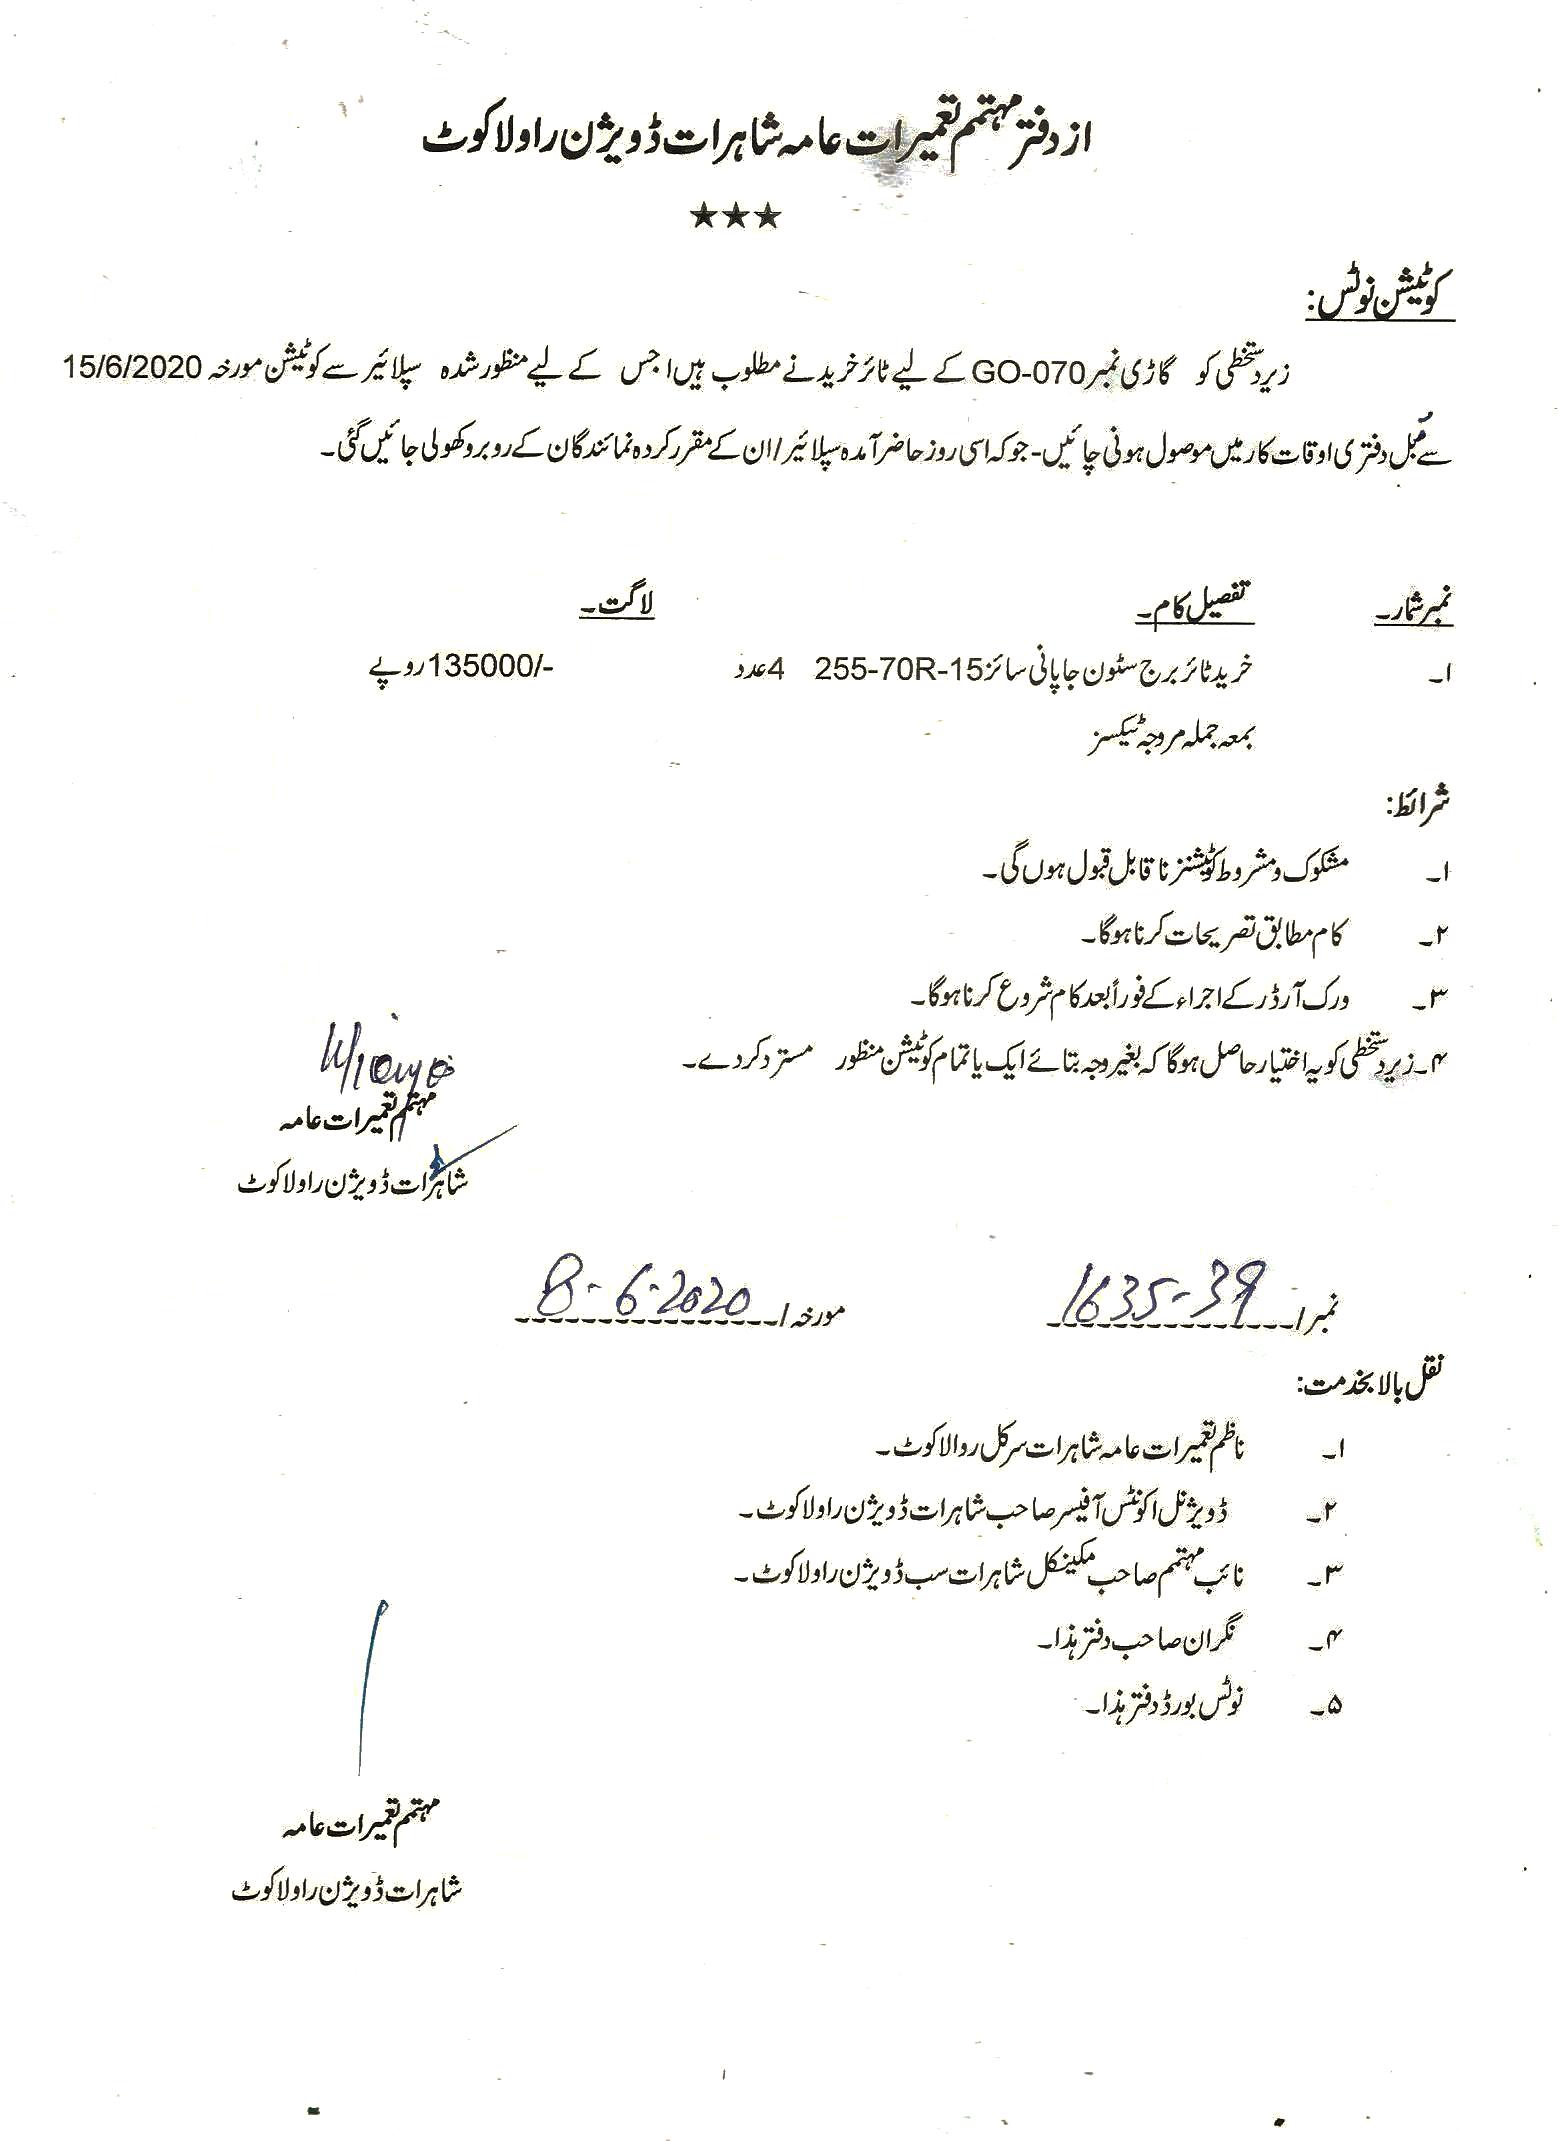 از دفتر مہتمم تعمیرات عامہ شاہرات ڈویژن راولاکوٹ
★★★
کوٹیشن نوٹس:
زیر دستخطی کو گاڑی نمبر GO-070 کے لیے ٹائر خریدنے مطلوب ہیں ا جس کے لیے منظور شدہ سپلائیر سے کوٹیشن مورخہ 15/6/2020
سے قبل دفتری اوقات کار میں موصول ہونی چائیں- جو کہ اسی روز حاضر آمدہ سپلائیر/ان کے مقرر کردہ نمائندگان کے روبرو کھولی جائیں گئی۔
نمبر شمار۔ تفصیل کام۔ لاگت۔
۱۔ خرید ٹائر برج سٹون جاپانی سائز 255-70R-15 4 عدد 135000/- روپے
بمعہ جملہ مروجہ ٹیکسز
شرائط:
۱۔ مشکوک و مشروط کوٹیشنز نا قابل قبول ہوں گی۔
۲۔ کام مطابق تصریحات کرنا ہوگا۔
۳۔ ورک آرڈر کے اجراء کے فوراً بعد کام شروع کرنا ہوگا۔
۴۔ زیر دستخطی کو یہ اختیار حاصل ہوگا کہ بغیر وجہ بتائے ایک یا تمام کوٹیشن منظور مسترد کر دے۔
مہتمم تعمیرات عامہ
شاہرات ڈویژن راولاکوٹ
نمبر/ 1635-39 مورخہ/ 8-6-2020
نقل بالا بخدمت:
۱۔ ناظم تعمیرات عامہ شاہرات سرکل روالاکوٹ۔
۲۔ ڈویژنل اکونٹس آفیسر صاحب شاہرات ڈویژن راولاکوٹ۔
۳۔ نائب مہتمم صاحب مکینکل شاہرات سب ڈویژن راولاکوٹ۔
۴۔ نگران صاحب دفتر ہذا۔
۵۔ نوٹس بورڈ دفتر ہذا۔
مہتمم تعمیرات عامہ
شاہرات ڈویژن راولاکوٹ